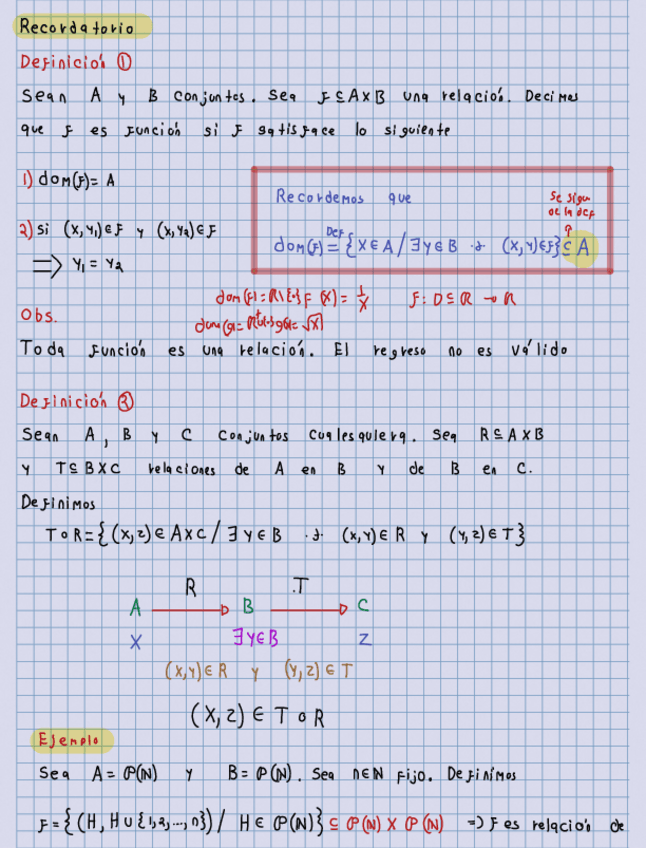 Recordatorio
Definición ①
Sean A y B conjuntos. Sea f⊆AxB una relación. Decimos
que f es función si f satisface lo siguiente
1) dom(f)= A
2) si (x,y₁)∈f y (x,y₂)∈f
⟹ y₁ = y₂
Recordemos que
Se sigue
de la def
dom(f) =^Def {x∈A / ∃y∈B .э. (x,y)∈f} ⊆ A
dom(f)=ℝ\{0} f(x)= 1/x f: D⊆ℝ → ℝ
dom(g)=ℝ⁺∪{0} g(x)= √x
Obs.
Toda función es una relación. El regreso no es válido
Definición ②
Sean A, B y C conjuntos cualesquiera. Sea R⊆AxB
y T⊆BxC relaciones de A en B y de B en C.
Definimos
T∘R={(x,z)∈AxC / ∃y∈B .э. (x,y)∈R y (y,z)∈T}
R T
A → B → C
x ∃y∈B z
(x,y)∈R y (y,z)∈T
(x,z)∈T∘R
Ejemplo
Sea A= P(ℕ) y B= P(ℕ). Sea n∈ℕ fijo. Definimos
f={(H, H∪{1,2,...,n}) / H∈P(ℕ)} ⊆ P(ℕ) x P(ℕ) => f es relación de